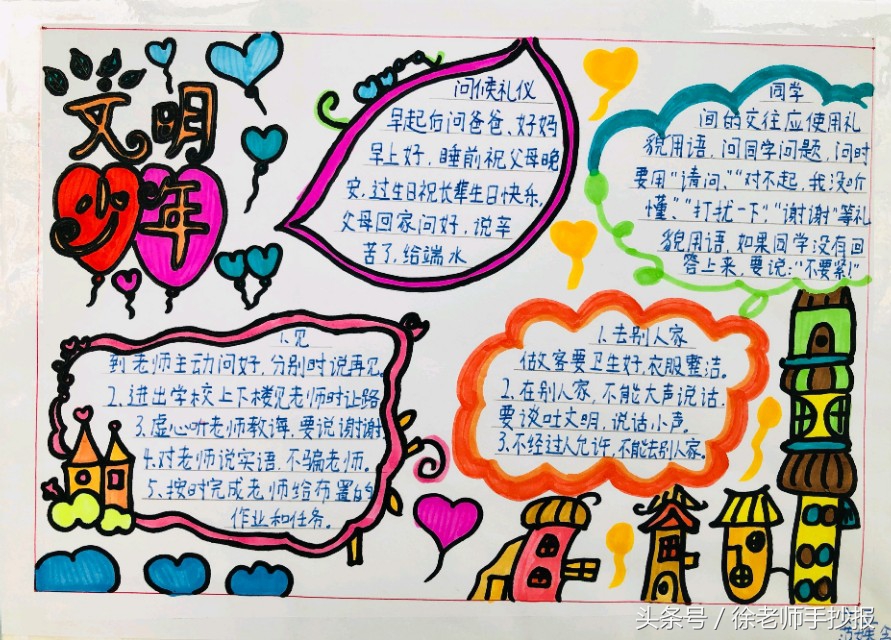 文明
少年
问候礼仪
早起后问爸爸、好妈
早上好，睡前祝父母晚
安.过生日祝长辈生日快乐.
父母回家问好，说辛
苦了,给端水
同学
间的交往应使用礼
貌用语，问同学问题，问时
要用“请问、”“对不起，我没听
懂”、“打扰一下”.“谢谢”等礼
貌用语.如果同学没有回
答上来，要说：“不要紧！”
1.见
到老师主动问好，分别时说再见
2、进出学校上下楼见老师时让路
3.虚心听老师教诲.要说谢谢
4.对老师说实语.不骗老师。
5、按时完成老师给布置的
作业和任务。
1.去别人家
做客要卫生好,衣服整洁。
2.在别人家，不能大声说话.
要谈吐文明，说话小声。
3.不经过人允许,不能去别人家。
头条号 / 徐老师手抄报